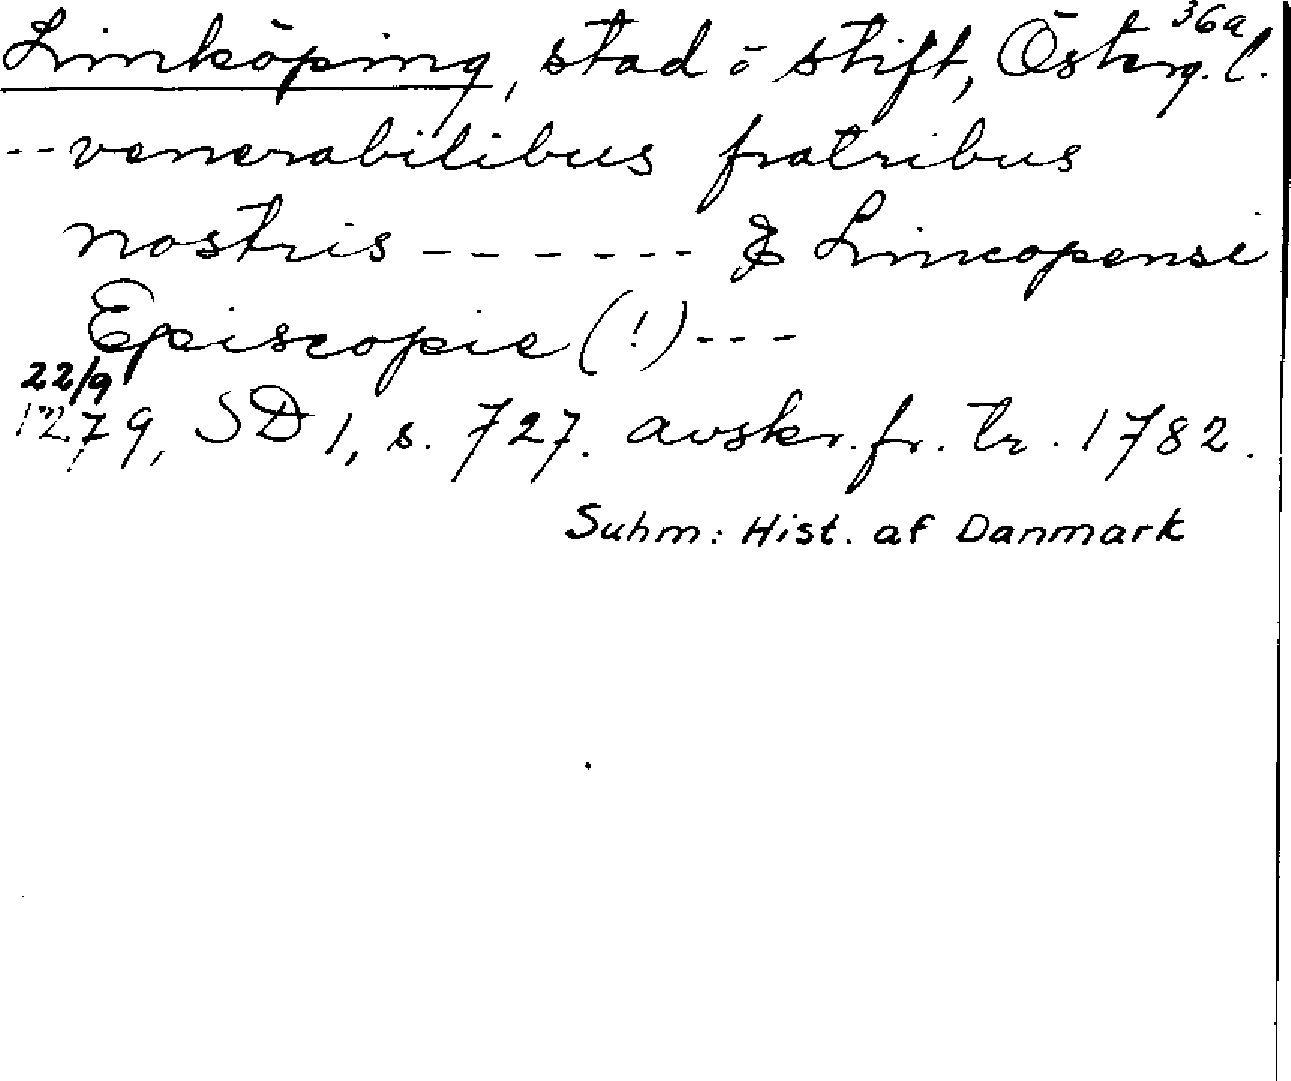 36a
Linköping, stad o stift, Österg. l.
-- venerabilibus fratribus
nostris ------- & Lincopensi
Episcopie (!) ---
22/9
1279, SD 1, s. 727. avskr. fr. tr. 1782.
Suhm: Hist. af Danmark